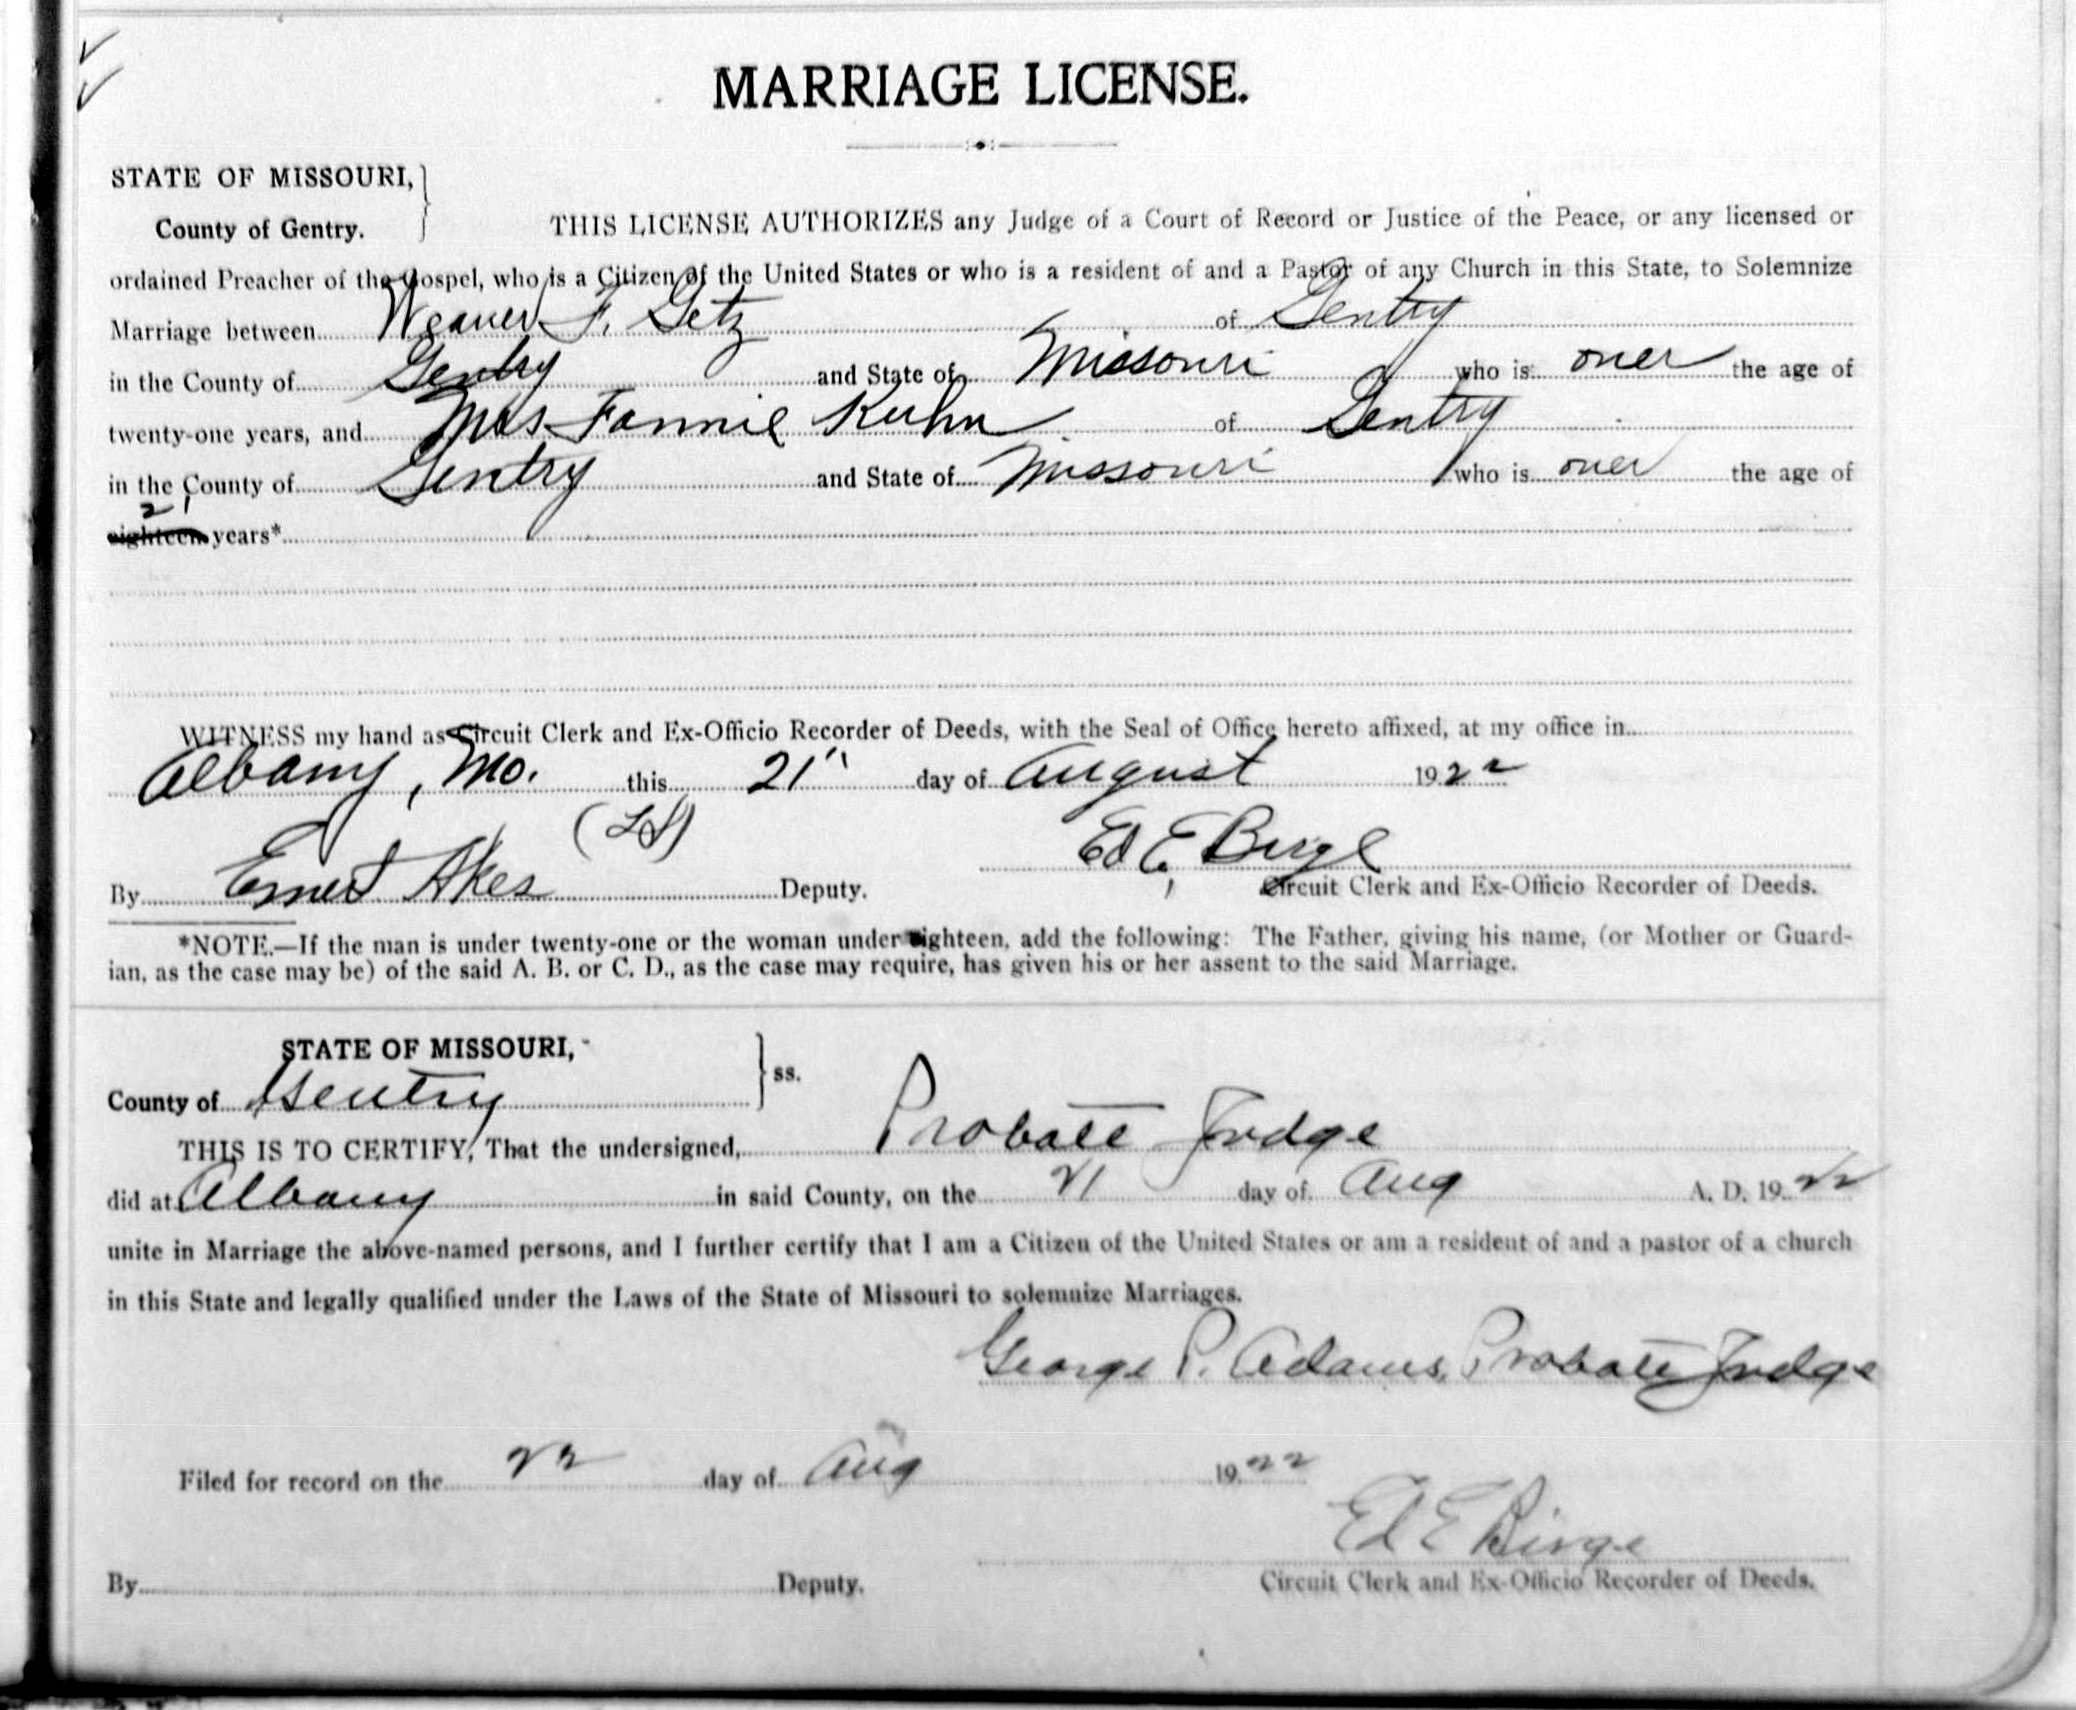 MARRIAGE LICENSE.
STATE OF MISSOURI,
County of Gentry.
THIS LICENSE AUTHORIZES any Judge of a Court of Record or Justice of the Peace, or any licensed or
ordained Preacher of the Gospel, who is a Citizen of the United States or who is a resident of and a Pastor of any Church in this State, to Solemnize
Marriage between Weaver F. Getz of Gentry
in the County of Gentry and State of Missouri who is over the age of
twenty-one years, and Mrs Fannie Kuhn of Gentry
in the County of Gentry and State of Missouri who is over the age of
21
eighteen years*
WITNESS my hand as Circuit Clerk and Ex-Officio Recorder of Deeds, with the Seal of Office hereto affixed, at my office in
Albany, Mo. this 21" day of August 1922
(LS) Ed E. Birge
By Ernest Akes Deputy. Circuit Clerk and Ex-Officio Recorder of Deeds.
*NOTE.—If the man is under twenty-one or the woman under eighteen, add the following: The Father, giving his name, (or Mother or Guard-
ian, as the case may be) of the said A. B. or C. D., as the case may require, has given his or her assent to the said Marriage.
STATE OF MISSOURI,
ss.
County of Gentry
THIS IS TO CERTIFY, That the undersigned, Probate Judge
did at Albany in said County, on the 21 day of Aug A. D. 1922
unite in Marriage the above-named persons, and I further certify that I am a Citizen of the United States or am a resident of and a pastor of a church
in this State and legally qualified under the Laws of the State of Missouri to solemnize Marriages.
George P. Adams, Probate Judge
Filed for record on the 22 day of Aug 1922
Ed E Birge
By Deputy. Circuit Clerk and Ex-Officio Recorder of Deeds.